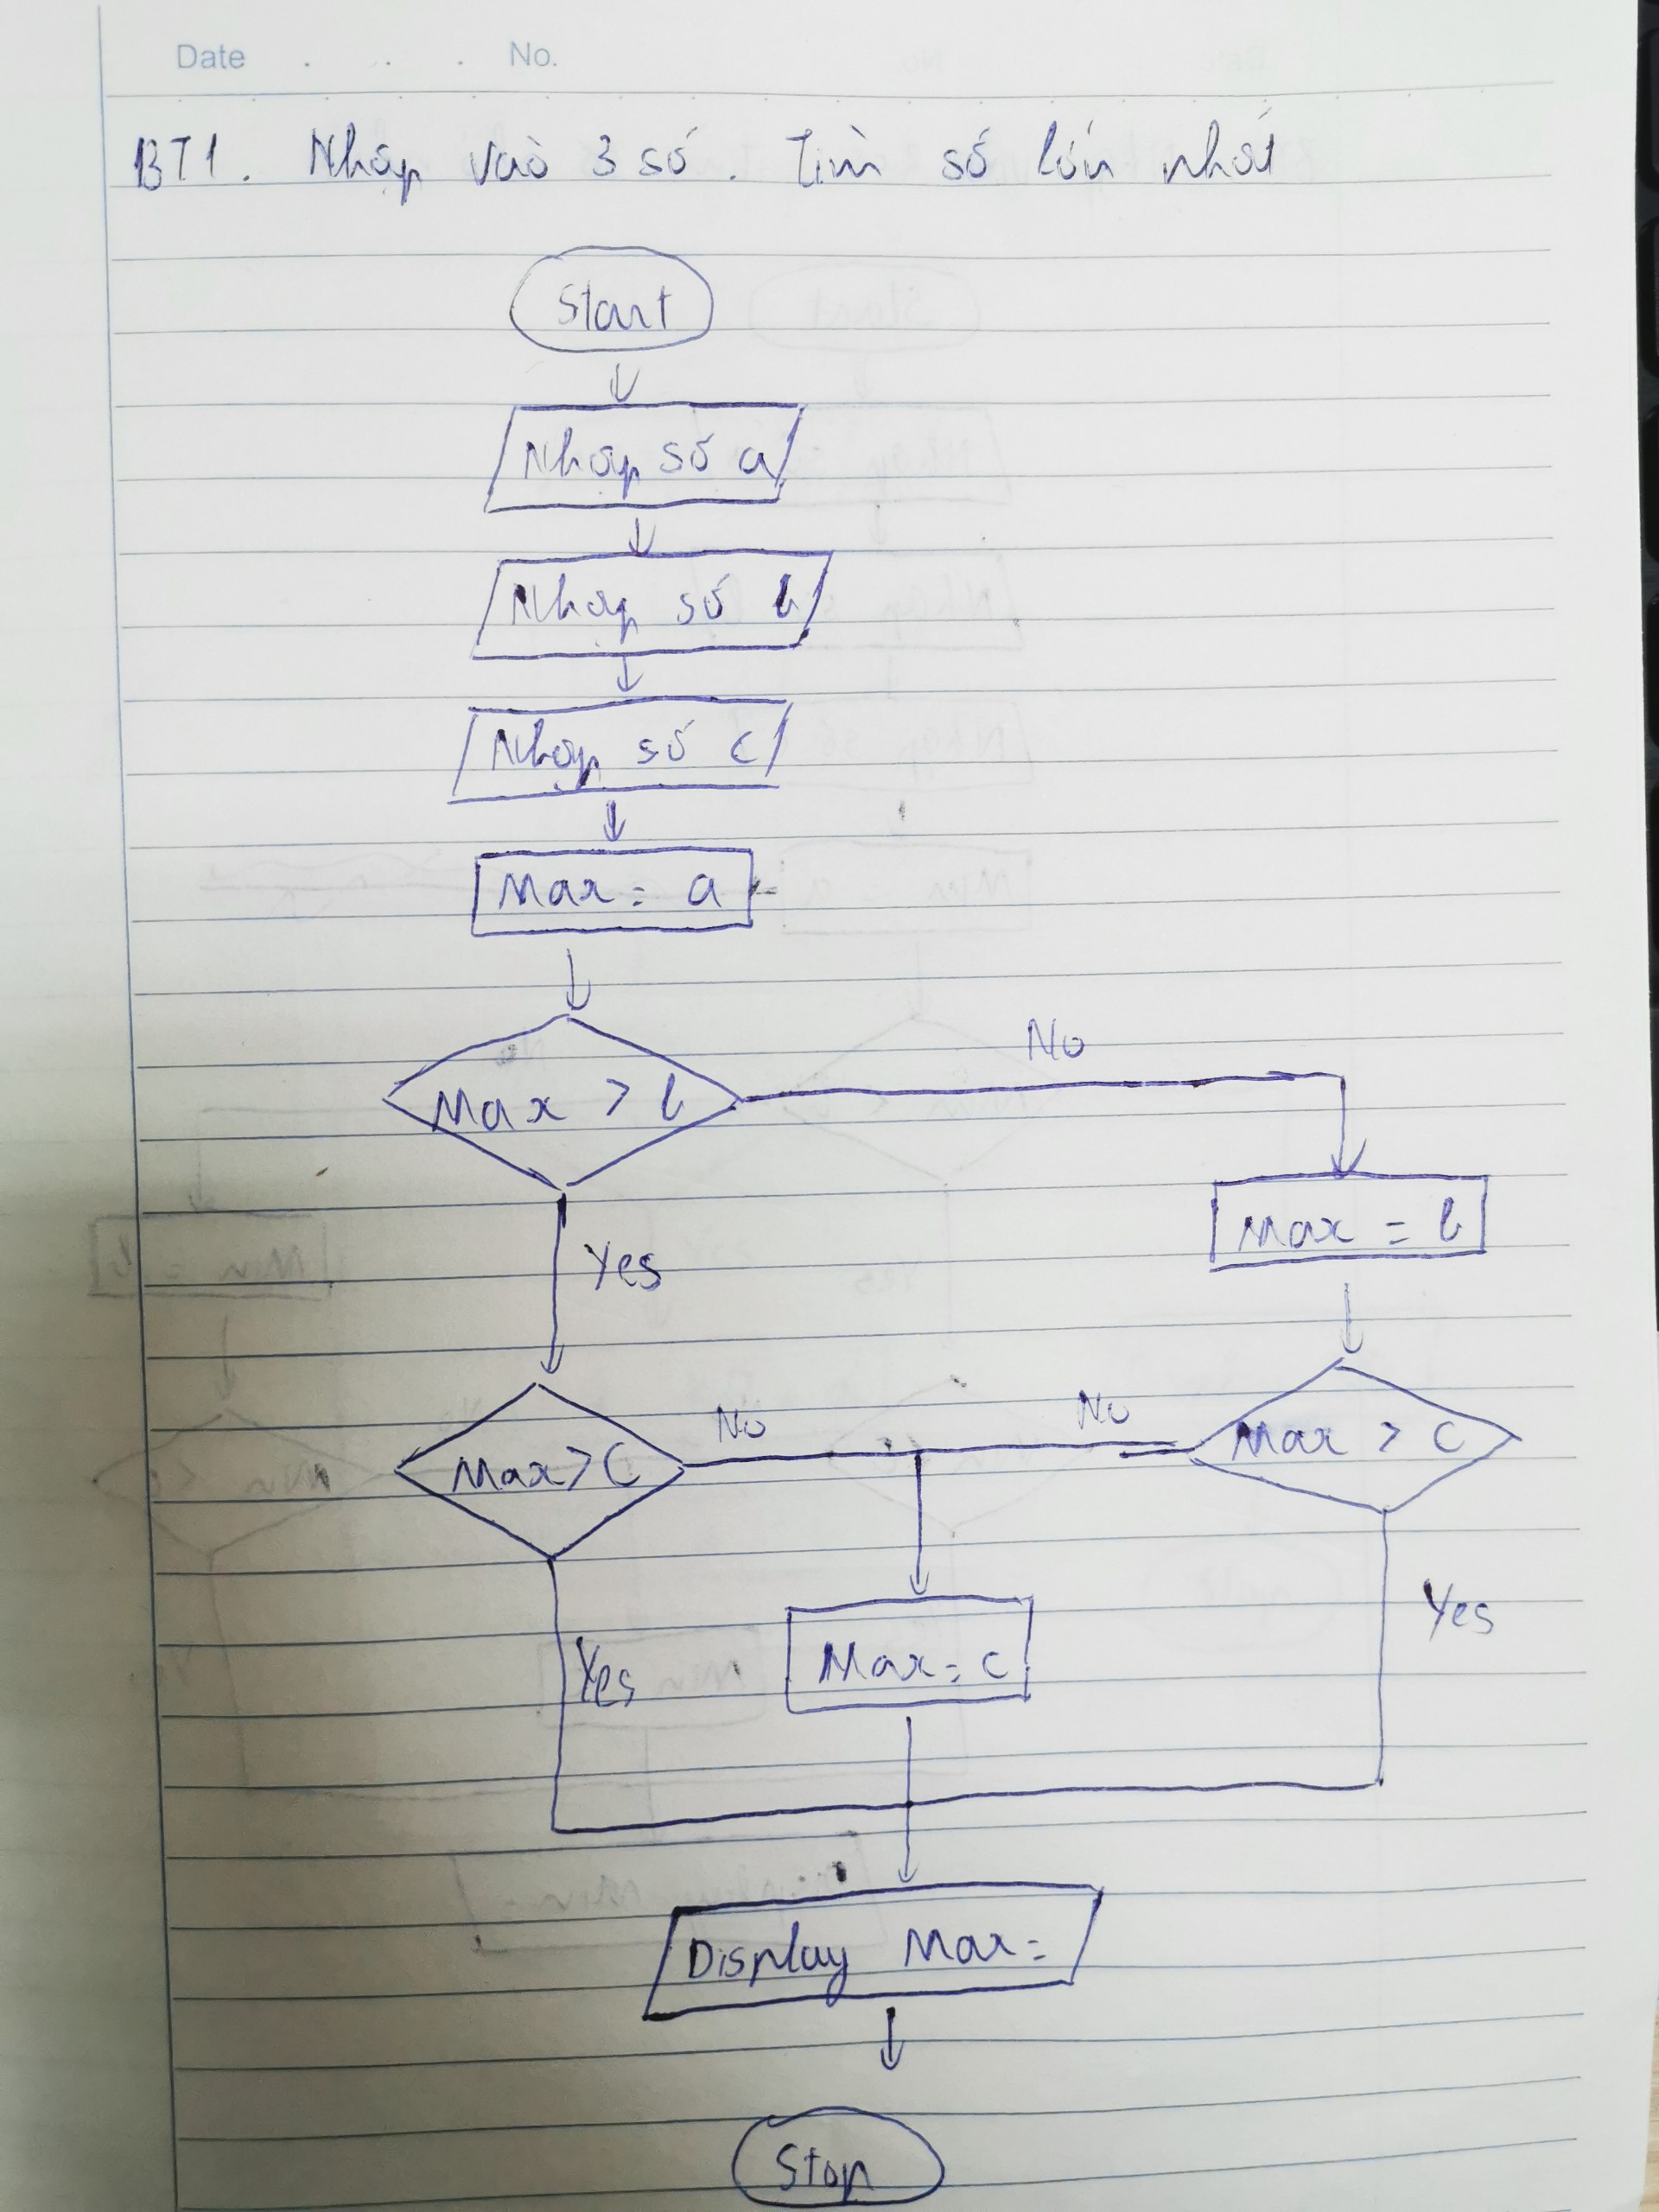 Date No.
BT1. Nhập vào 3 số. Tìm số lớn nhất
Start
Nhập số a
Nhập số b
Nhập số c
Max = a
Max > b
No
Yes
Max = b
Max > C
No
No
Max > C
Yes
Max = c
Yes
Display Max =
Stop